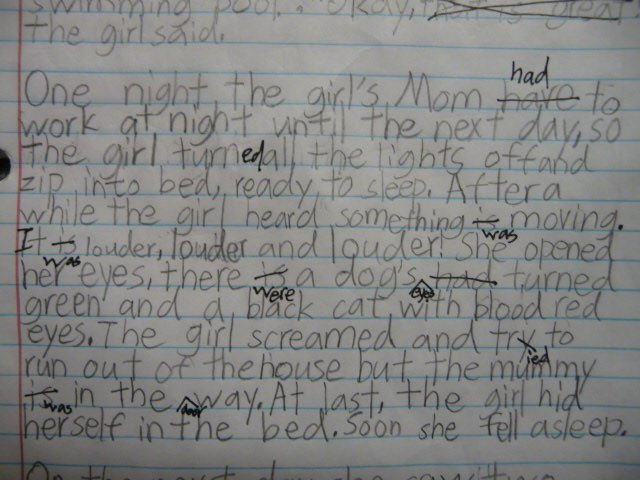 swimming pool. "Okay, that is great
the girl said.
had
One night the girl's Mom have to
work at night until the next day, so
the girl turned all the lights off and
zip into bed, ready to sleep. After a
while the girl heard something is moving.
was
It is louder, louder and louder! She opened
was
her eyes, there is a dog's had turned
were eyes
green and a black cat with blood red
eyes. The girl screamed and try to
ied
run out of the house but the mummy
is in the way. At last, the girl hid
was door
herself in the bed. Soon she fell asleep.
On the next day she